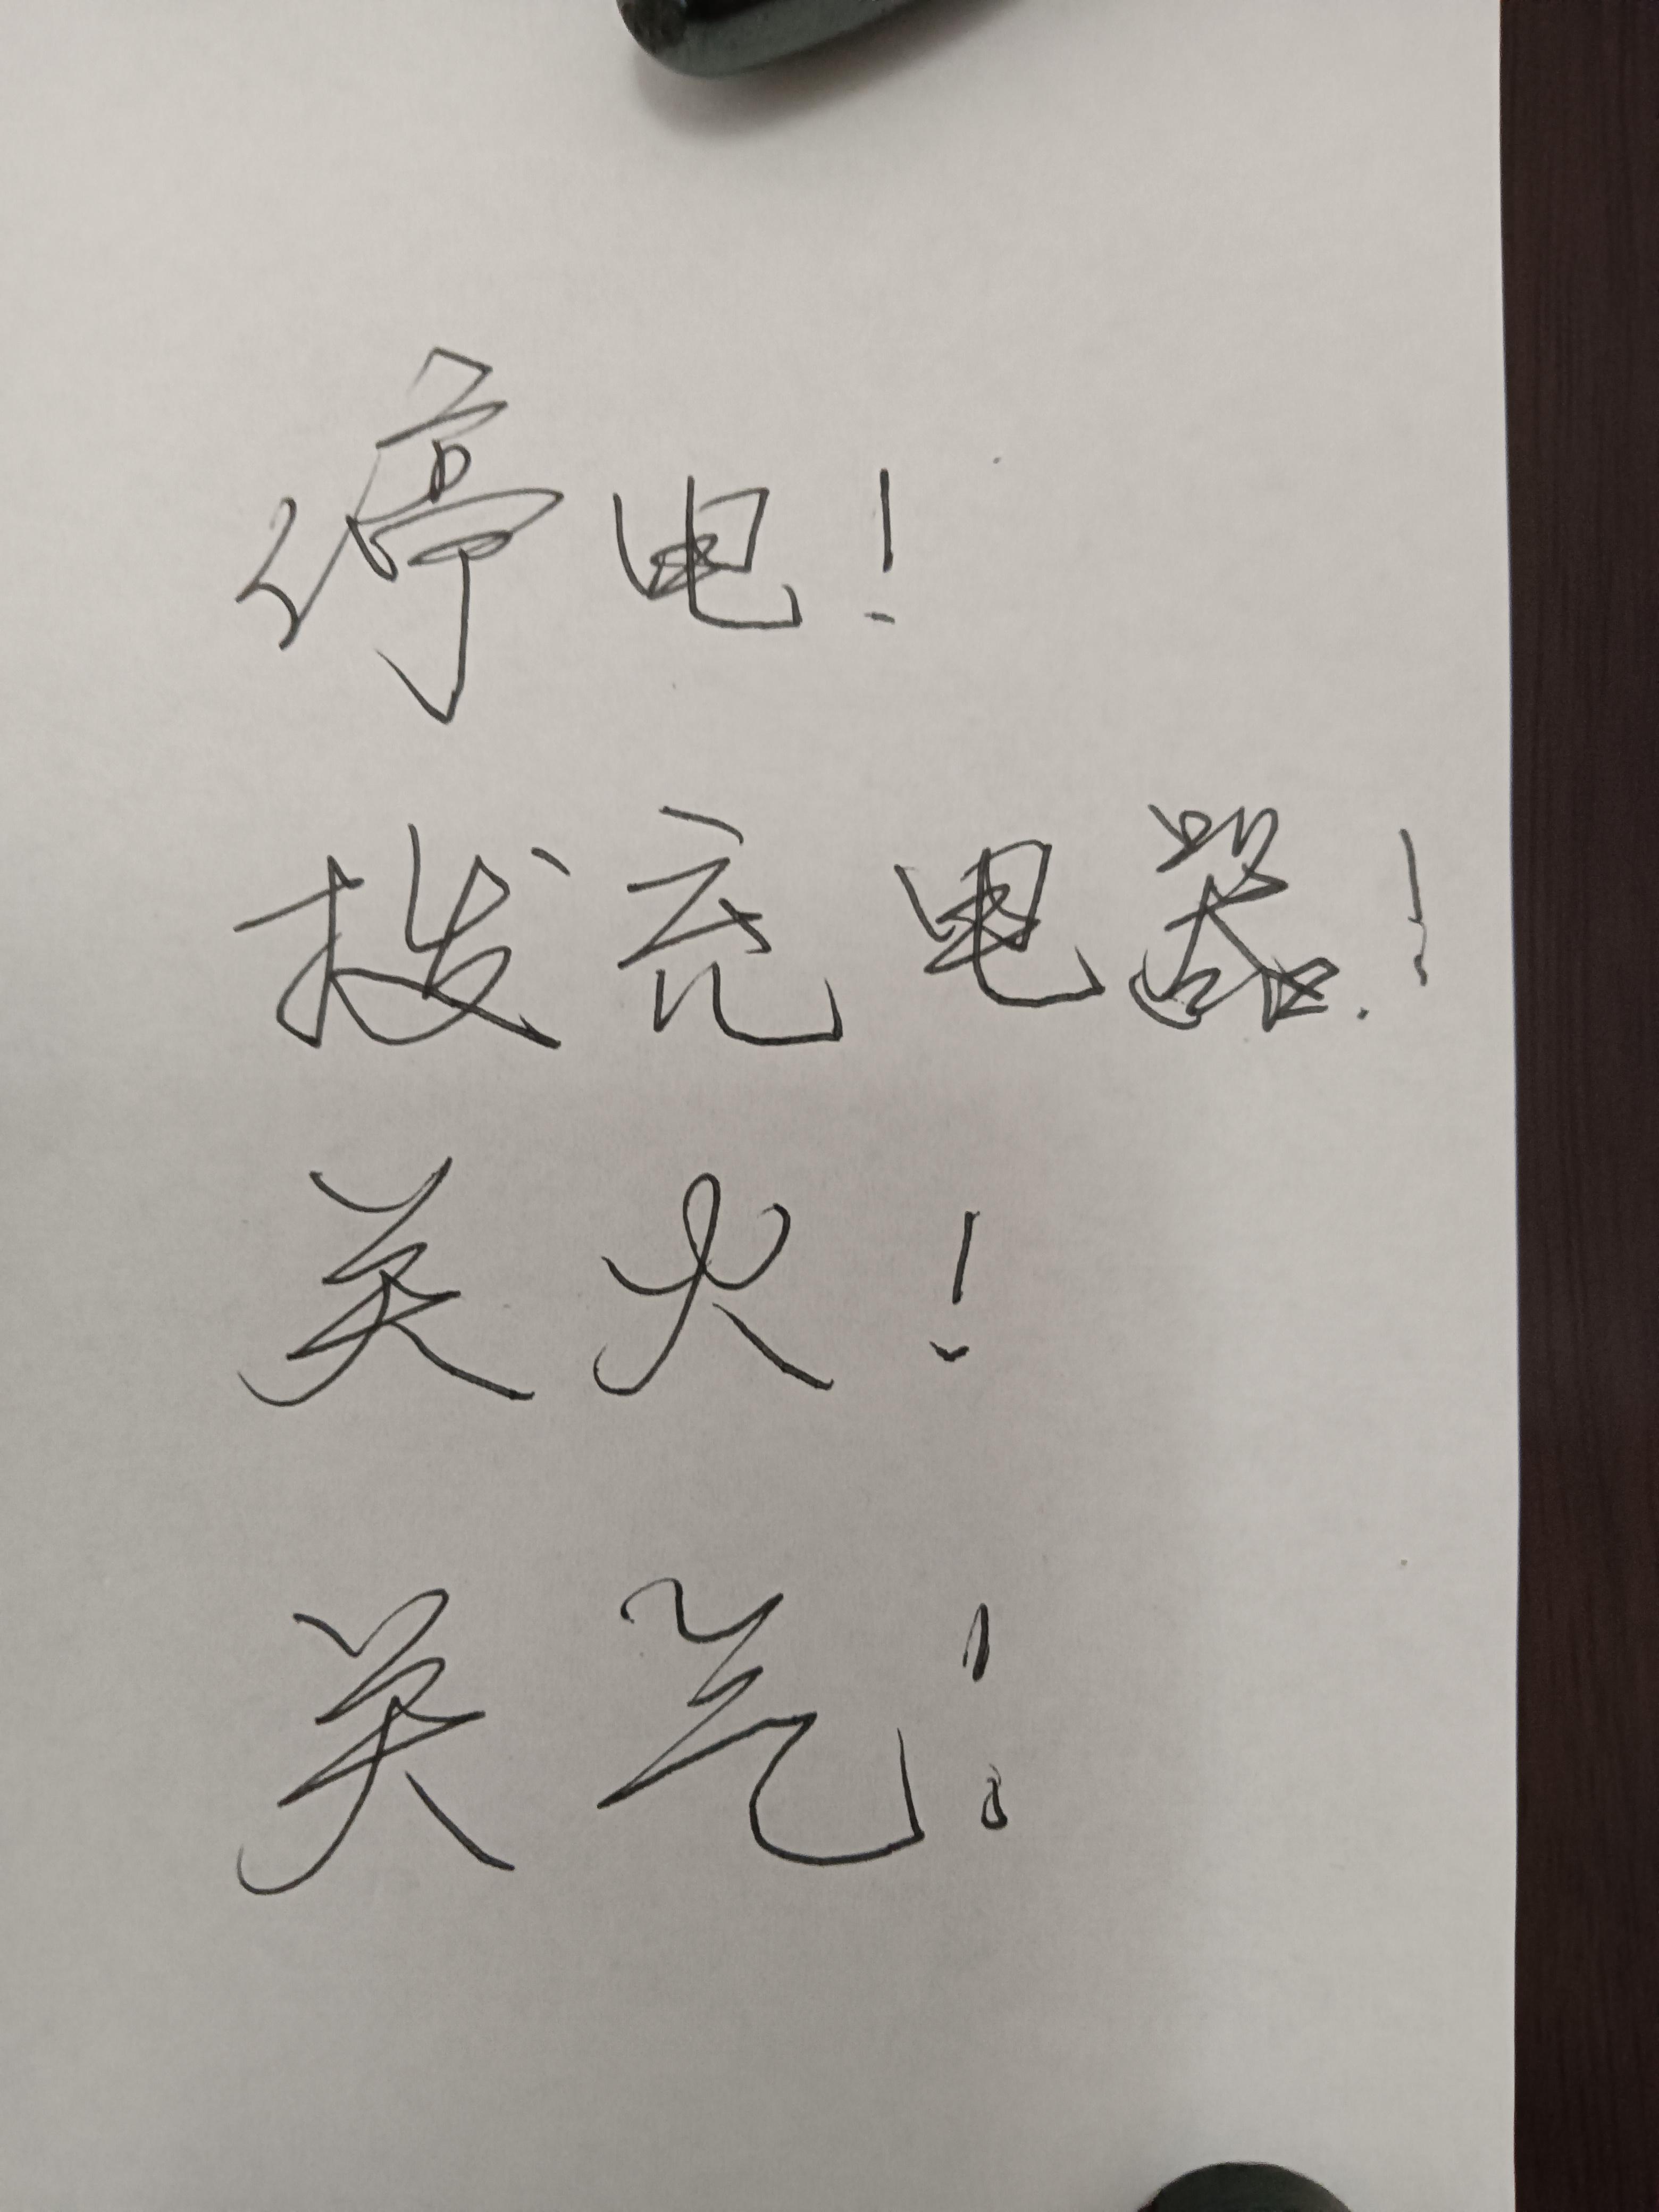 停电！
拨充电器！
关火！
关气！